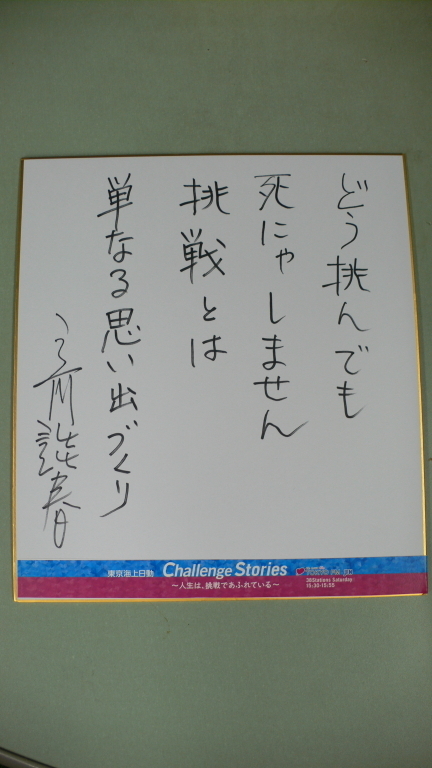 どう挑んでも
死にゃしません
挑戦とは
単なる思い出づくり
立川談春
東京海上日動 Challenge Stories
〜人生は、挑戦であふれている〜
TOKYO FM
38Stations Saturday
15:30-15:55